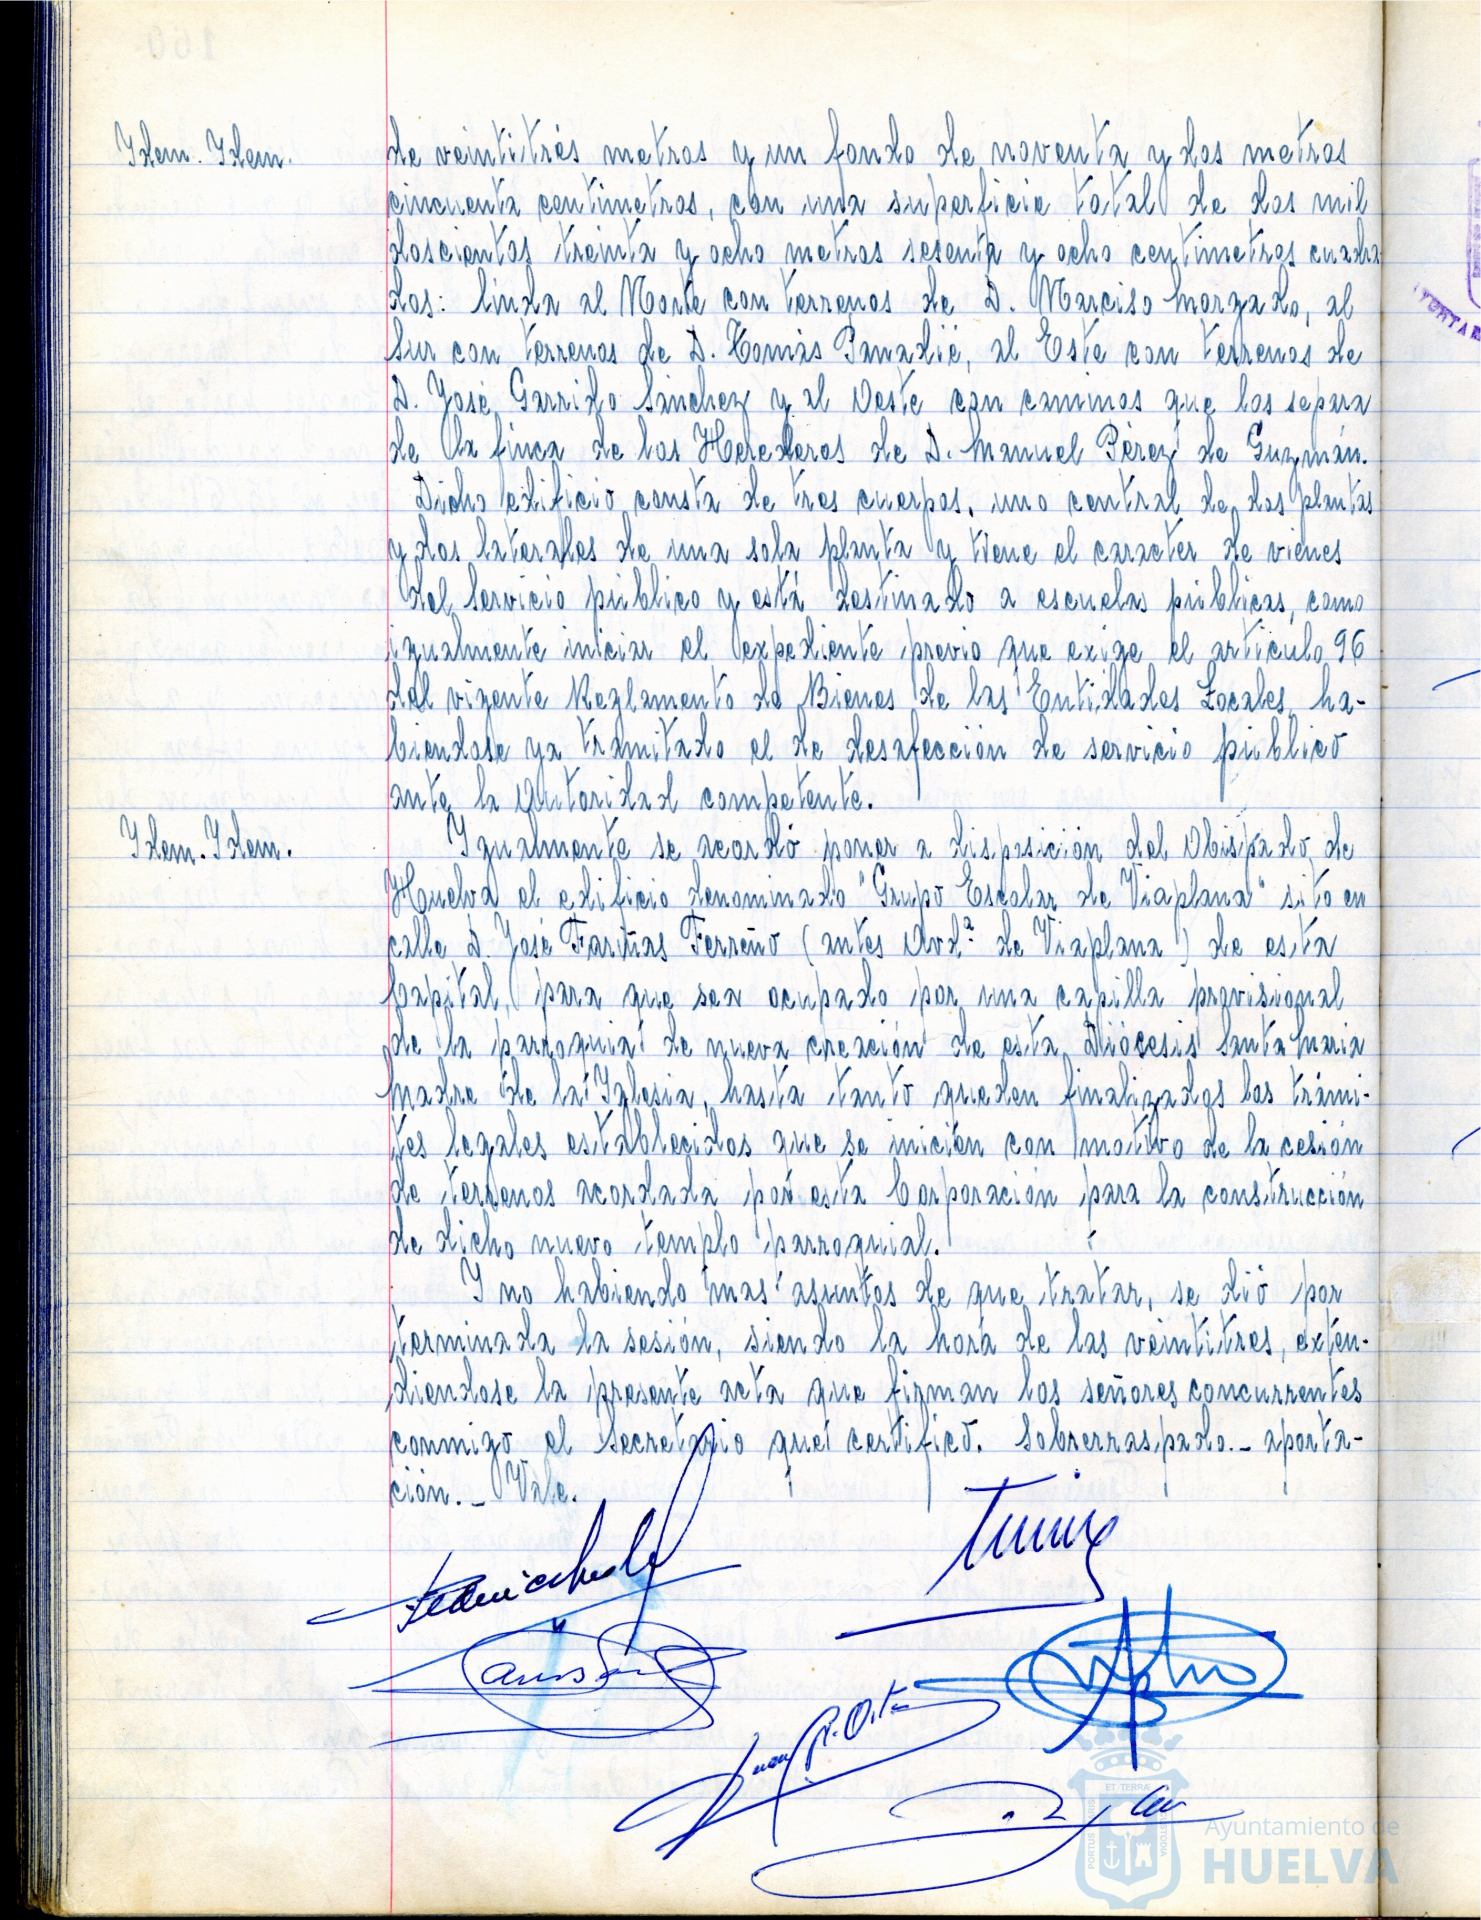 Idem. Idem.
de veintitrés metros y un fondo de noventa y dos metros
cincuenta centimetros, con una superficie total de dos mil
doscientos treinta y ocho metros sesenta y ocho centimetros cuadra
dos: linda al Norte con terrenos de D. Narciso Morgado, al
Sur con terrenos de D. Tomás Panadié, al Este con terrenos de
D. José Garrido Sánchez y al Oeste con caminos que los separa
de la finca de los Herederos de D. Manuel Pérez de Guzmán.
Dicho edificio consta de tres cuerpos, uno central de dos plantas
y dos laterales de una sola planta y tiene el caracter de vienes
del Servicio público y está destinado a escuelas públicas, como
igualmente iniciar el expediente previo que exige el artículo 96
del vigente Reglamento de Bienes de las Entidades Locales, ha-
biendose ya tramitado el de desafección de servicio público
ante la Autoridad competente.
Idem. Idem.
Igualmente se acordó poner a disposición del Obispado de
Huelva el edificio denominado "Grupo Escolar de Viaplana" sito en
calle D. José Fariñas Ferreño (antes Avdª. de Viaplana) de esta
Capital, para que sea ocupado por una capilla provisional
de la parroquia de nueva creación de esta Diócesis Santa Maria
Madre de la Iglesia, hasta tanto queden finalizados los trámi-
tes legales establecidos que se inicien con motivo de la cesión
de terrenos acordada por esta Corporación para la construcción
de dicho nuevo templo parroquial.
Y no habiendo mas asuntos de que tratar, se dió por
terminada la sesión, siendo la hora de las veintitres, exten-
diendose la presente acta que firman los señores concurrentes
conmigo el Secretario que certifico. Sobrerraspado._ aporta-
ción._ Vale.
Juan R. Orta
ET TERRÆ
PORTUS MARIS
CUSTODIA
Ayuntamiento de
HUELVA